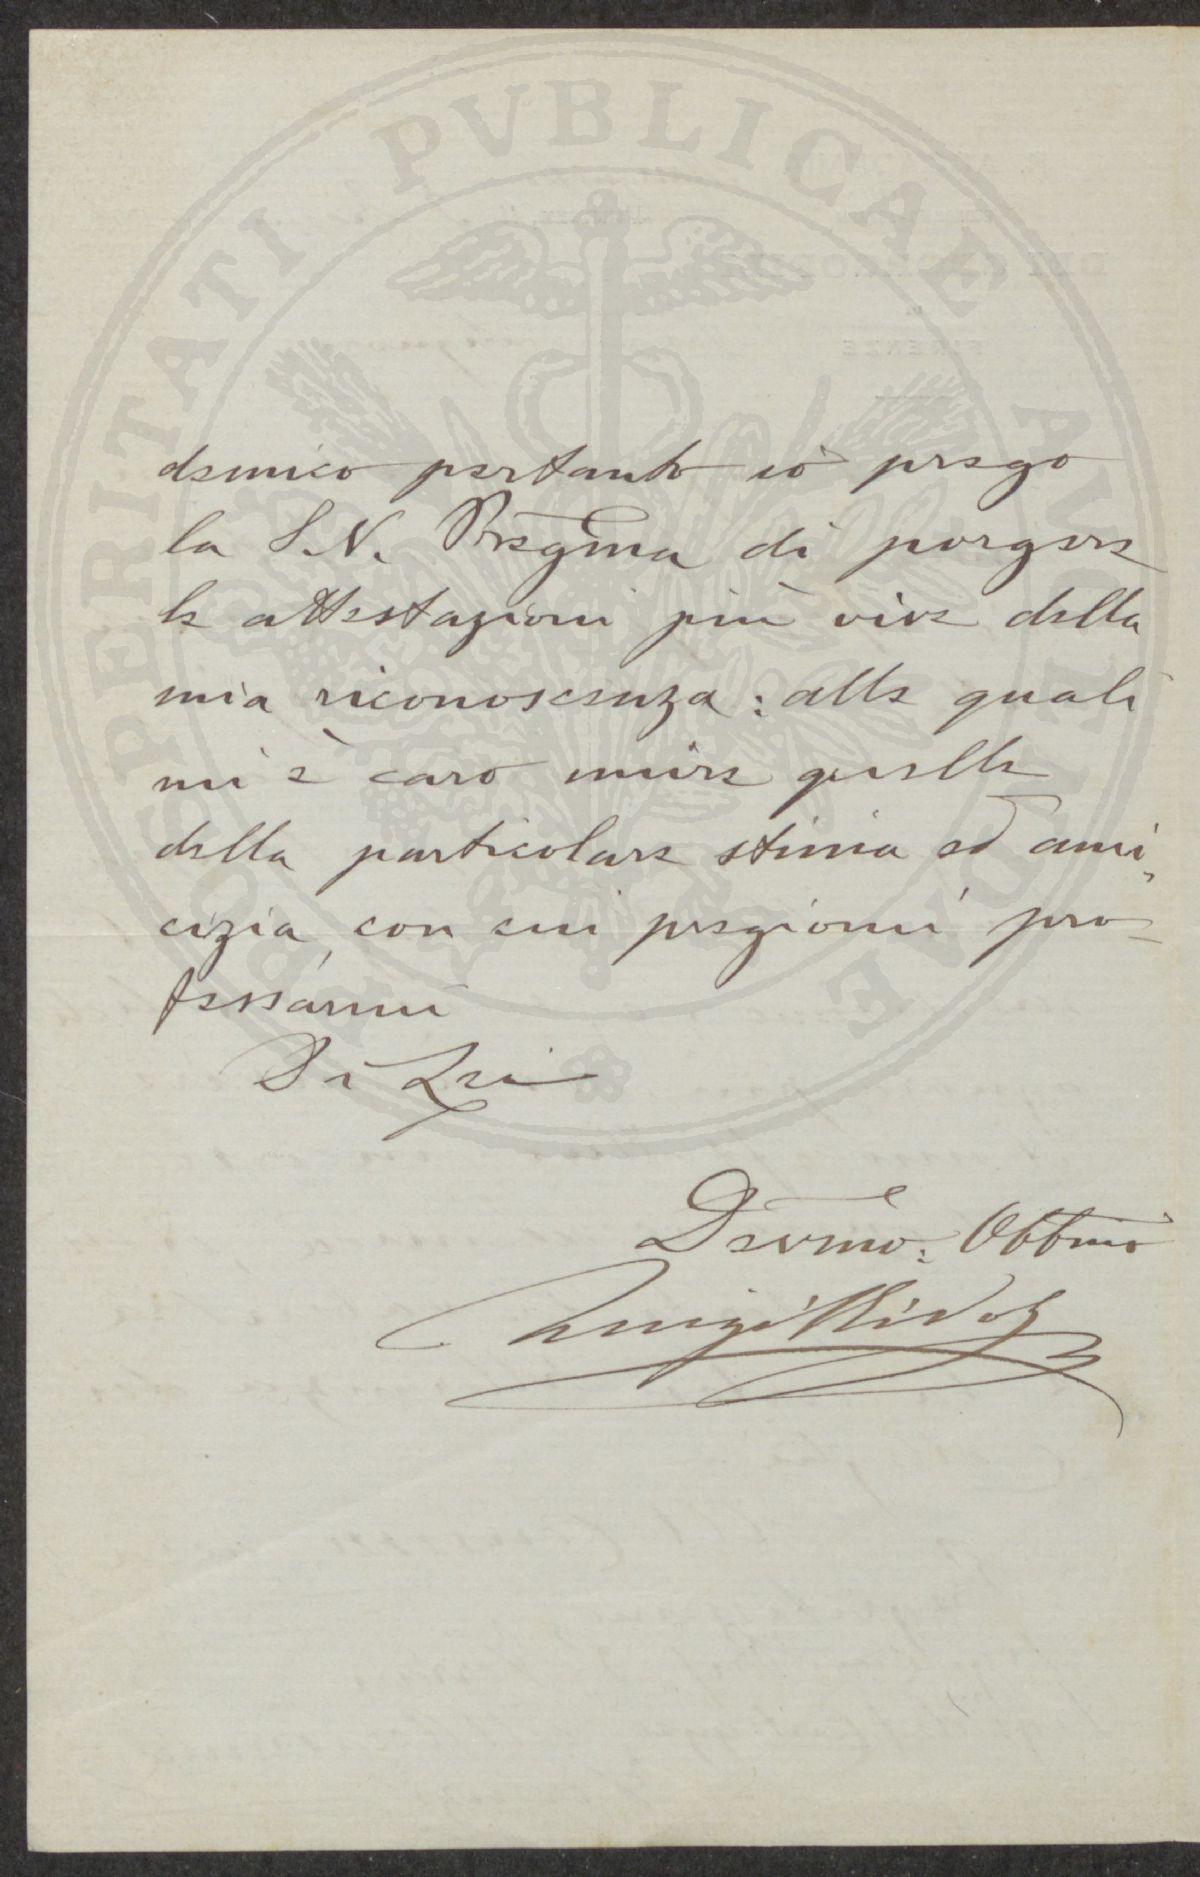 PROSPERITATI PVBLICAE AVGENDAE
demico pertanto io prego
la S.V. Pregma di porgere
le attestazioni più vive della
mia riconoscenza: alle quali
mi è caro unire quelle
della particolare stima ed ami-
cizia, con cui pregiomi pro-
fessarmi
Di Lei
Devmo. Obbmo
Luigi Ridolfi
FIRENZE